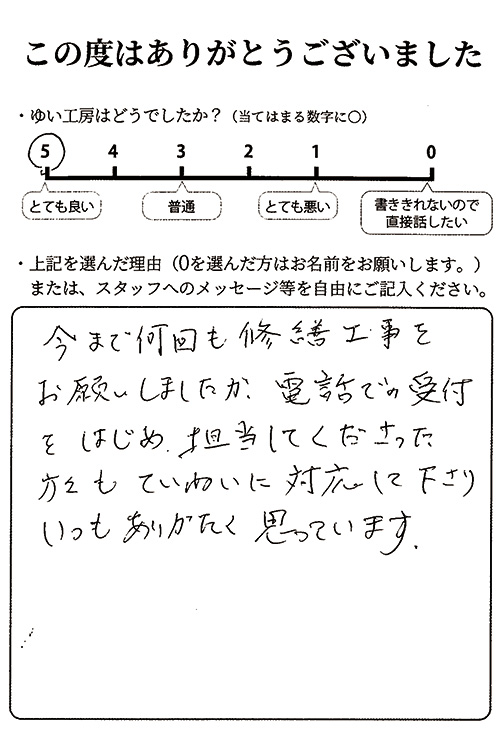 この度はありがとうございました
・ゆい工房はどうでしたか？（当てはまる数字に○）
5 4 3 2 1 0
とても良い 普通 とても悪い 書ききれないので
直接話したい
・上記を選んだ理由（0を選んだ方はお名前をお願いします。）
または、スタッフへのメッセージ等を自由にご記入ください。
今まで何回も修繕工事を
お願いしましたが、電話での受付
をはじめ、担当してくださった
方々もていねいに対応して下さり
いつもありがたく思っています。